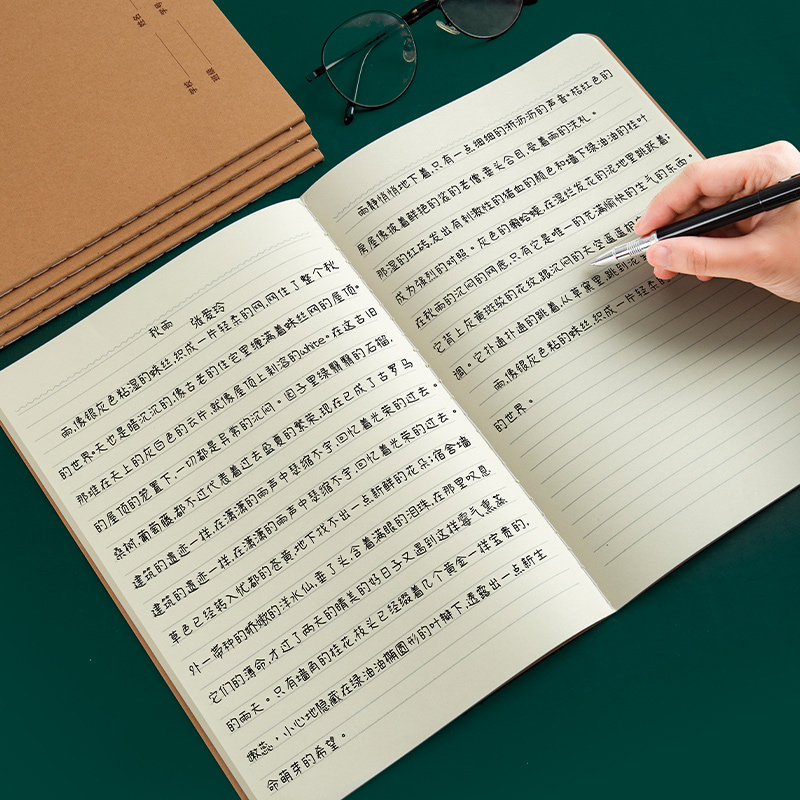 秋雨 张爱玲
雨,像银灰色粘湿的蛛丝,织成一片轻柔的网,网住了整个秋
的世界。天也是暗沉沉的,像古老的住宅里缠满着蛛丝网的屋顶。
那堆在天上的灰白色的云片,就像屋顶上剥落的white。在这古旧
的屋顶的笼罩下,一切都是异常的沉闷。园子里绿翳翳的石榴、
桑树、葡萄藤,都不过代表着过去盛夏的繁荣,现在已成了古罗马
建筑的遗迹一样,在潇潇的雨声中瑟缩不宁,回忆着光荣的过去。
建筑的遗迹一样,在潇潇的雨声中瑟缩不宁,回忆着光荣的过去。
草色已经转入忧郁的苍黄,地下找不出一点新鲜的花朵;宿舍墙
外一带种的娇嫩的洋水仙,垂了头,含着满眼的泪珠,在那里叹息
它们的薄命,才过了两天的晴美的好日子又遇到这样霉气熏蒸
的雨天。只有墙角的桂花,枝头已经缀着几个黄金一样宝贵的,
嫩蕊,小心地隐藏在绿油油椭圆形的叶瓣下,透露出一点新生
命萌芽的希望。
雨静悄悄地下着,只有一点细细的淅沥沥的声音。桔红色的
房屋像披着鲜艳的的老僧,垂头合目,受着雨的洗礼。
那湿的红砖,发出有刺激性的猪血的颜色和墙下绿油油的桂叶
成为强烈的对照。灰色的癞蛤蟆,在湿烂发花的泥地里跳跃着;
在秋雨的沉闷的网底,只有它是唯一的充满愉快的生气的东西。
它背上灰黄斑驳的花纹,跟沉闷的天空遥遥相
调。它扑通扑通的跳着,从草窠里,跳到泥
雨,像银灰色粘的蛛丝,织成一片轻柔的
的世界。
学校
班级
姓名
学号